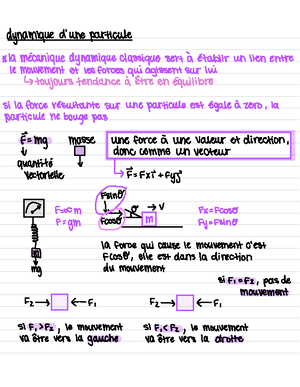 dynamique d'une particule
* la mécanique dynamique classique sert à établir un lien entre
le mouvement et les forces qui agissent sur lui
↳ toujours tendance à être en équilibre
si la force résultante sur une particule est égale à zero, la
particule ne bouge pas
F = mg
masse
quantité
vectorielle
une force à une valeur et direction,
donc comme un vecteur
↳ F = Fxî + Fyĵ
m
mg
F = gm
Fsinθ
Fcosθ
θ
→ V
m
Fx = Fcosθ
Fy = Fsinθ
la force qui cause le mouvement c'est
Fcosθ, elle est dans la direction
du mouvement
si F₁ = F₂, pas de
mouvement
F₂ → ← F₁
F₂ → ← F₁
si F₁ > F₂, le mouvement
va être vers la gauche
si F₁ < F₂, le mouvement
va être vers la droite